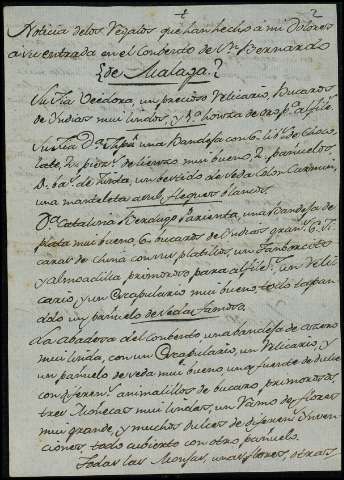 2
Noticia de los Regalos que han hecho à mi Dolores
a su entrada en el Conbento de Sn. Bernardo
de Malaga.
Su Tia Veedora, un precioso Relicario, Bucaros
de Yndias mui lindos, y
Su Tia Da. una Bandeja con 6. libs. de Choco
late, 2. piezs. de lienzo mui bueno, 2. pañuelos,
de tinta, un bestido de seda color Carmin,
una manteleta azul, flequs. blancos.
Da. Catalina Berdugo Parienta, una Bandeja de
plata mui bueno, 6. bucaros de Yndias grans. 6. Xi
caras de china con sus platillos, un Tamborcito
y almoadilla primoroso para alfils. un Reli
cario y un Escapulario mui bueno, todo tapan
dolo un pañuelo de seda famoso.
La Abadesa del Conbento, una bandeja de azero
mui linda, con un Escapulario, un Relicario, y
un pañuelo de seda mui bueno, una fuente de dulce
con diferens. animalillos de bucaro, primorosos,
tres Moñecas mui lindas, un Ramo de flores
mui grande, y muchos dulces de diferens. Ynven
ciones, todo cubierto con otro pañuelo.
Todas las Monjas, unas flores, otras